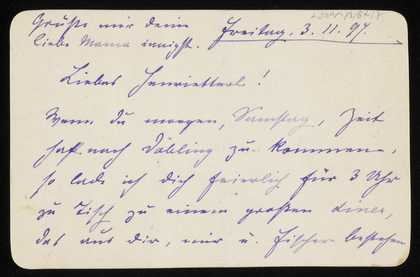 Grüße mir deine
liebe Mama innigst.
Freitag, 3. 11. 97.
Liebes Henrietterl!
Wenn du morgen, Samstag, Zeit
hast nach Döbling zu kommen,
so lade ich dich feierlich für 3 Uhr
zu Tisch zu einem großen diner,
das aus dir, mir u. Fischer bestehen